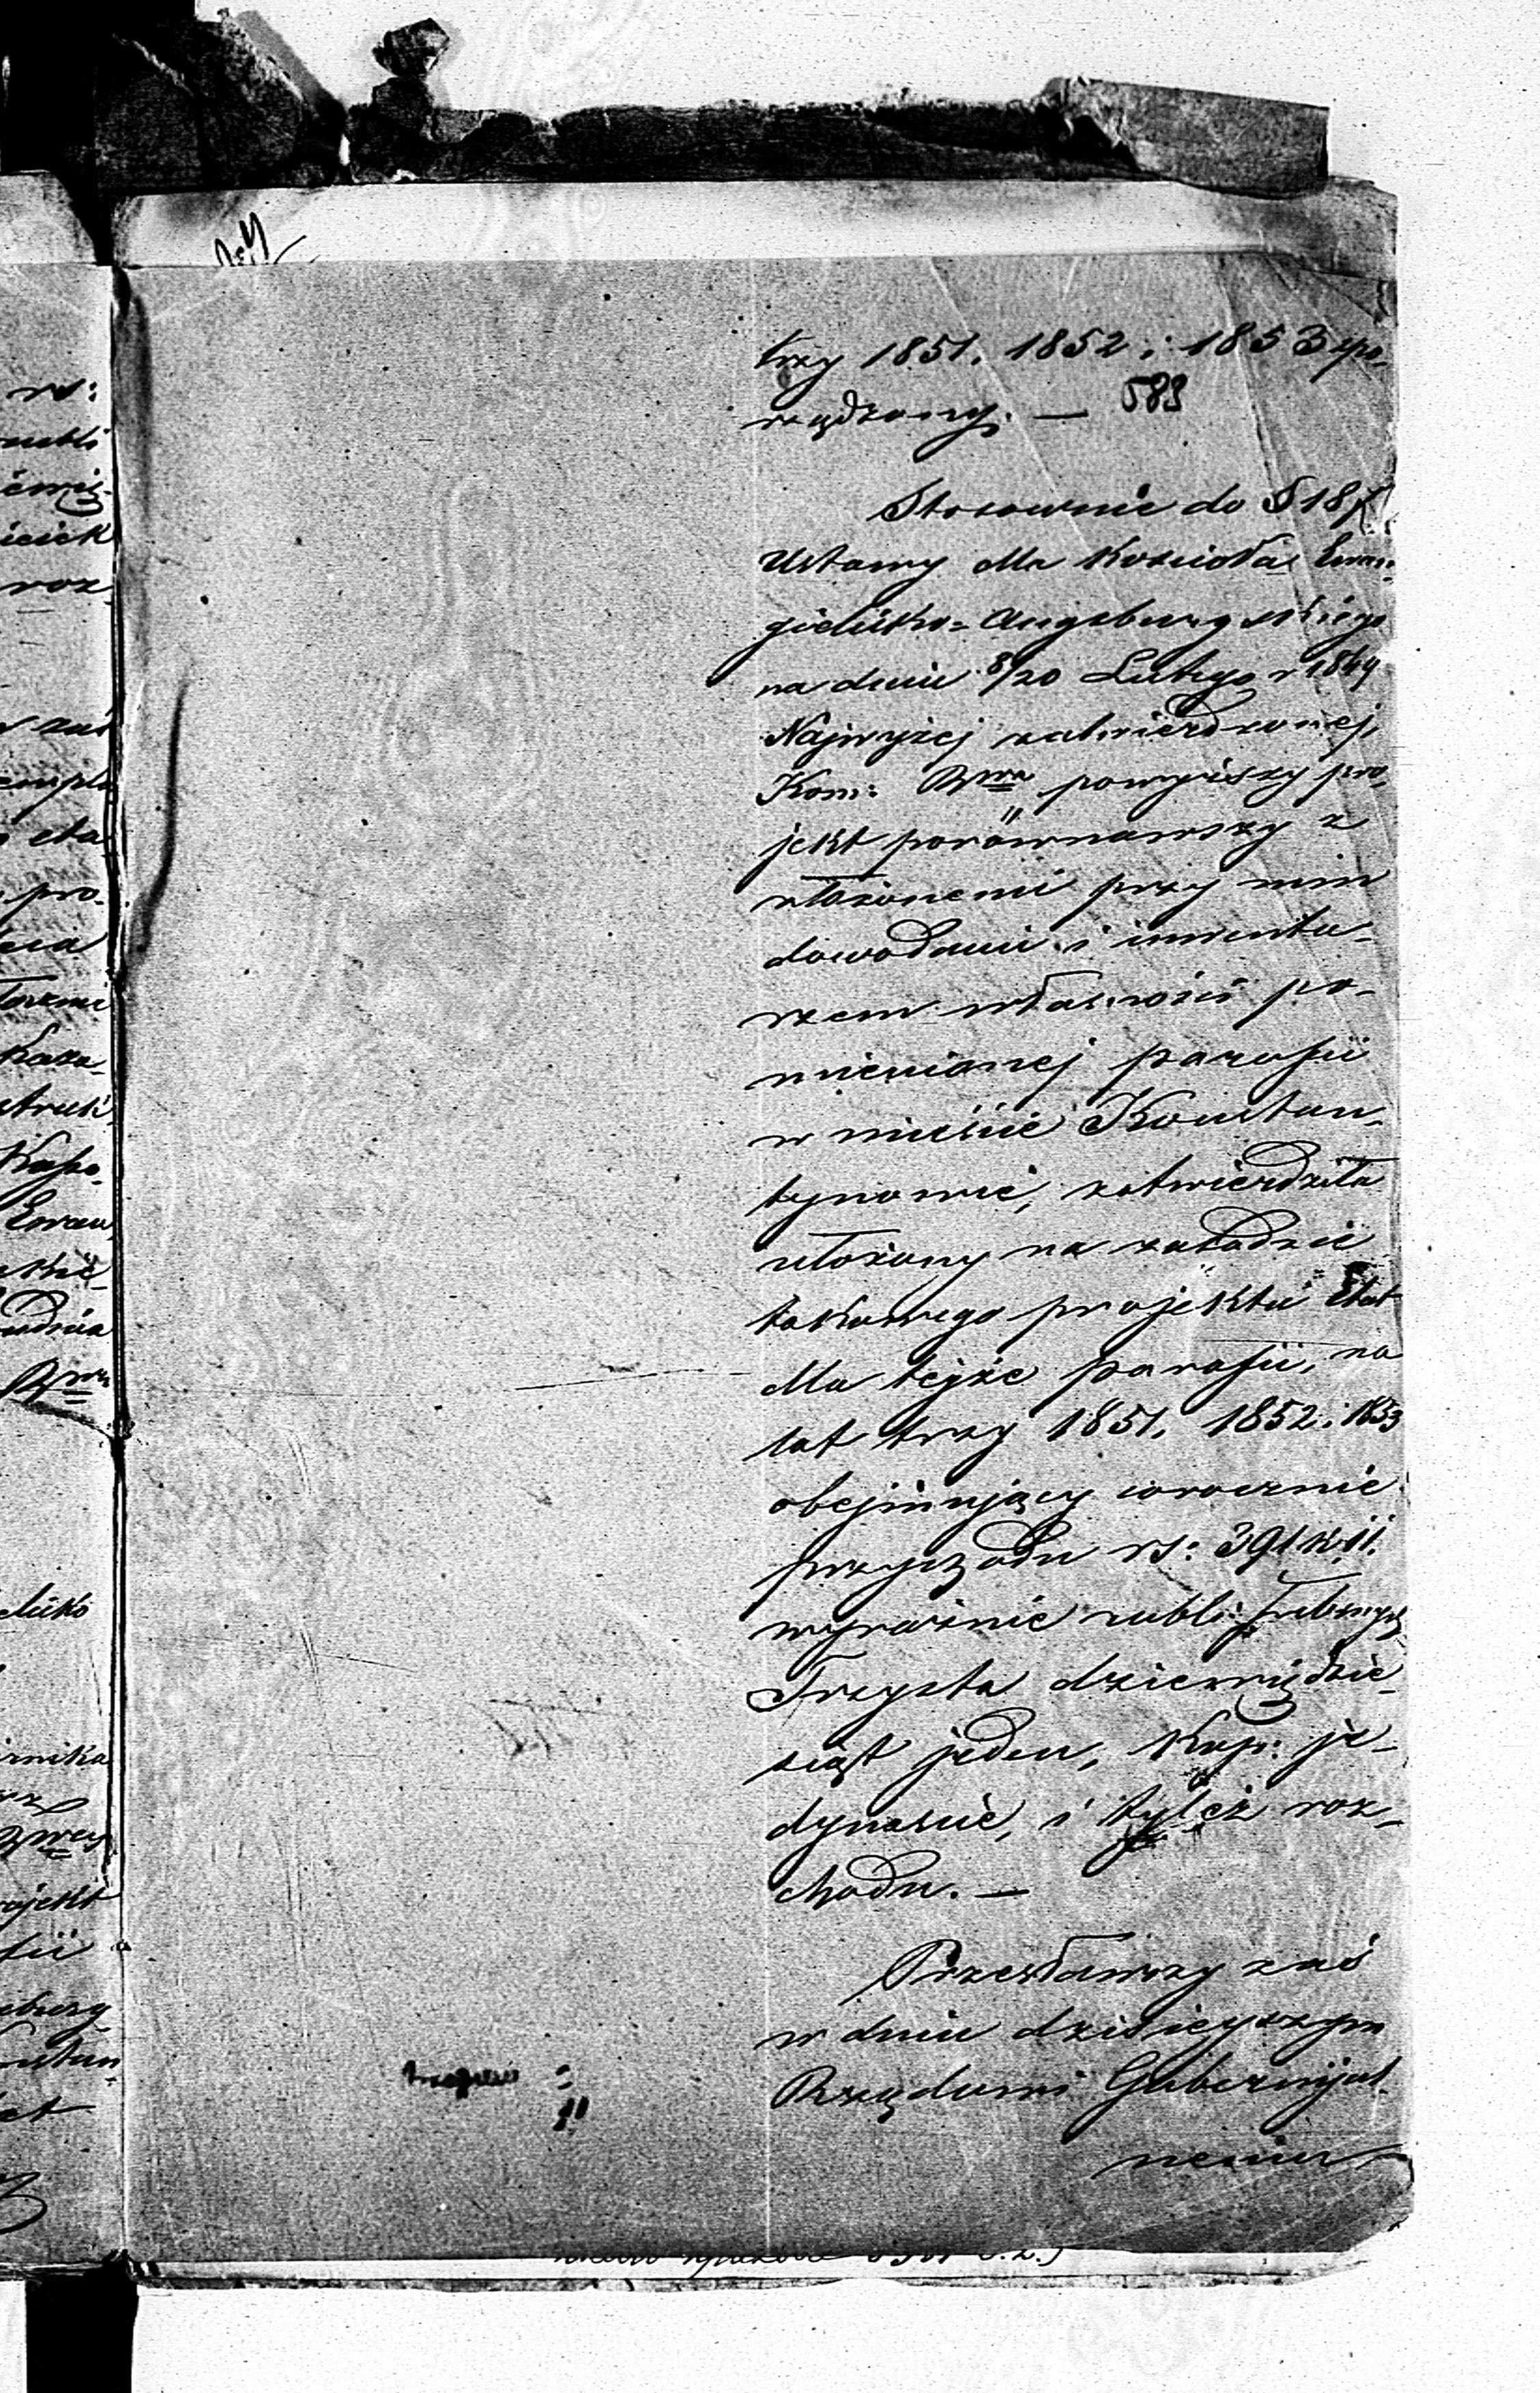 trzy 1851. 1852 i 1853 spo-
rządzony. — 583
Stosownie do § 187
Ustawy dla Kościoła Ewan-
gielicko-Augsburgskiego
na dniu 8/20 Lutego r 1849
Najwyżej zatwierdzonej,
Kom: Rwa powyższy pro-
jekt porównawszy z
złożonemi przy nim
dowodami i inwenta-
rzem własności po-
mienianej parafii
w mieście Konstan-
tynowie, zatwierdziła
ułożony na zasadzie
takowego projektu Etat
dla tejże parafii, na
lat trzy 1851. 1852 i 1853
obejmujący corocznie
przychodu rs: 391 k 11.
wyraźnie rubli srebrnych
Trzysta dziewięćdzie-
siąt jeden, Kop: je-
dynaście, i tyleż roz-
chodu. —
Przesławszy zaś
w dniu dzisiejszym
Rządowi Gubernijal-
nemu
rs:
rubli
roz
pro-
Kasa-
Ewan
Rwa
elicko
rojekt
fii